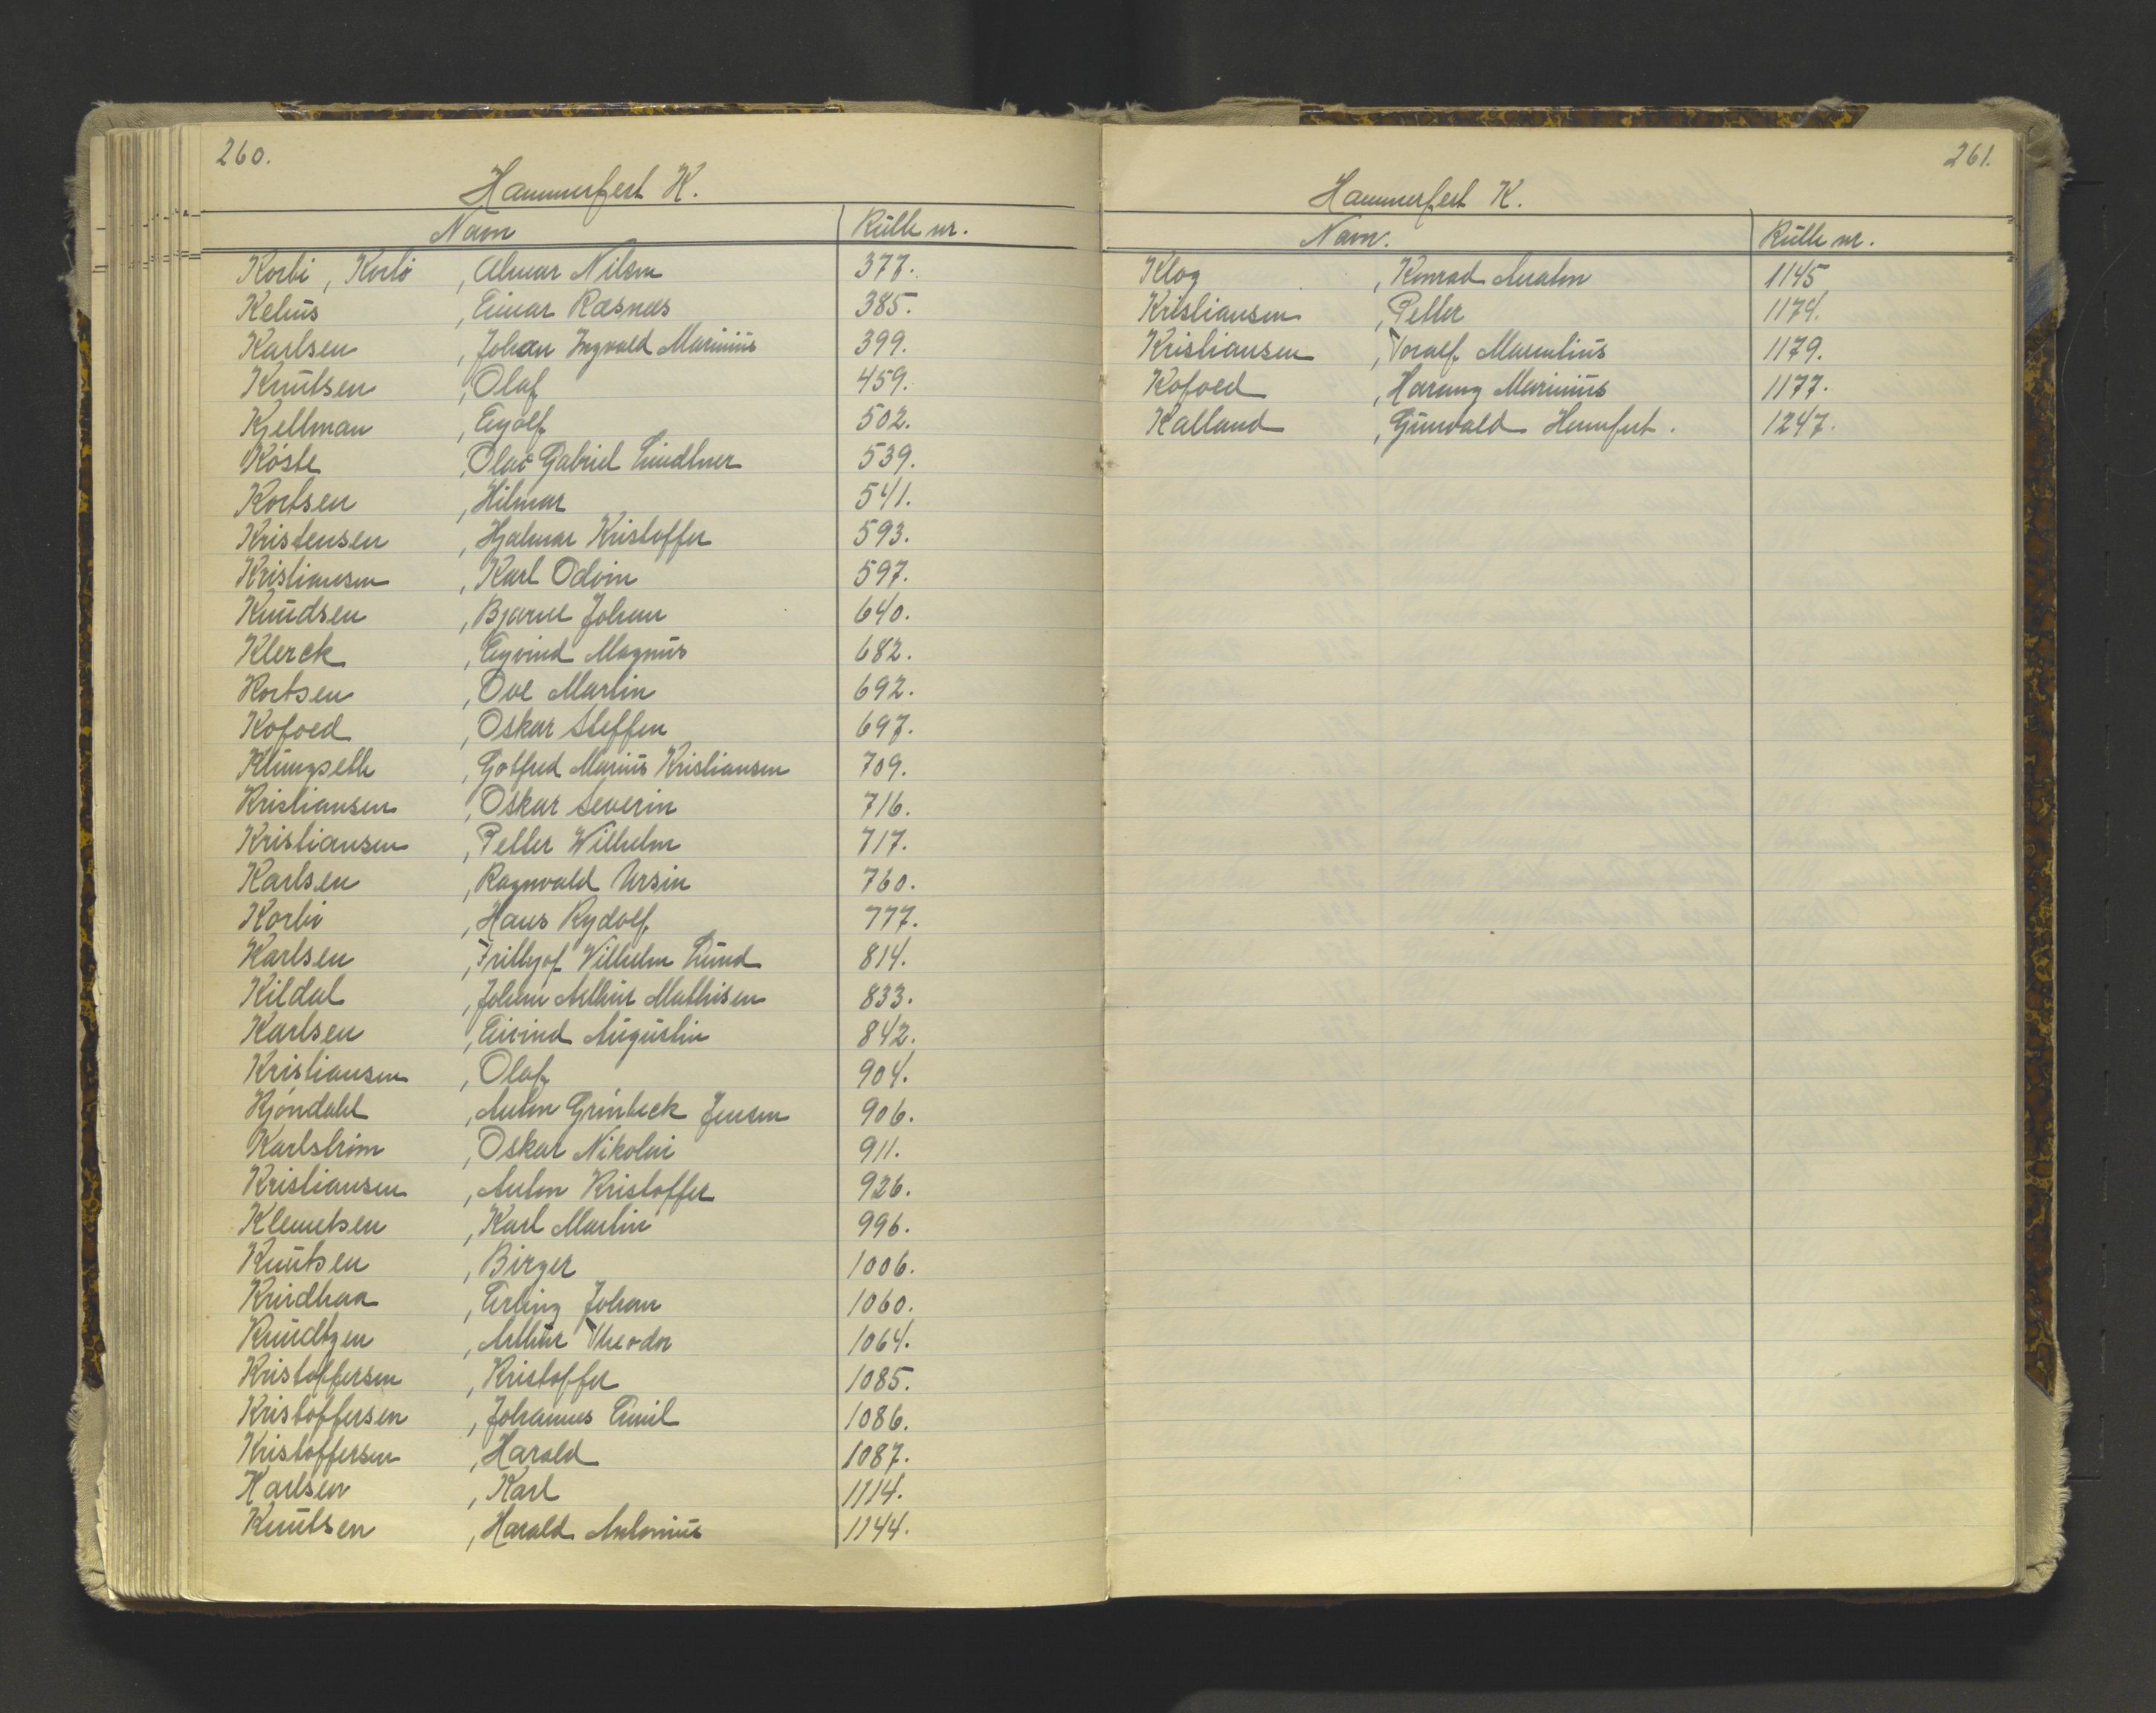 260.
Hammerfest K.
Navn
Rulle nr.
Korbi, Korbö, Almar Nilsen 377.
Kelius, Einar Ræsnæs 385.
Karlsen, Johan Ingvald Marinius 399.
Knutsen, Olaf 459.
Kjellman, Eyolf 502.
Köste, Olai Gabriel Lindtner 539.
Kortsen, Hilmar 541.
Kristensen, Hjalmar Kristoffer 593.
Kristiansen, Karl Odvin 597.
Knudsen, Bjarne Johan 640.
Klerck, Eyvind Magnus 682.
Kortsen, Ove Martin 692.
Kofoed, Oskar Steffen 697.
Klungseth, Gotfred Marius Kristiansen 709.
Kristiansen, Oskar Severin 716.
Kristiansen, Petter Wilhelm 717.
Karlsen, Ragnvald Ursin 760.
Korbi, Hans Rydolf 777.
Karlsen, Frithjof Vilhelm Lund 814.
Kildal, Johan Arthur Mathisen 833.
Karlsen, Eivind Augustin 842.
Kristiansen, Olaf 904.
Kjöndahl, Anton Grünbeck Jensen 906.
Karlström, Oskar Nikolai 911.
Kristiansen, Anton Kristoffer 926.
Klemetsen, Karl Martin 996.
Knutsen, Birger 1006.
Erling Johan 1060.
Knudtzen, Arthur Theodor 1064.
Kristoffersen, Kristoffer 1085.
Kristoffersen, Johannes Emil 1086.
Kristoffersen, Harald 1087.
Karlsen, Karl 1114.
Knutsen, Harald Antonius 1144.
261.
Hammerfest K.
Navn.
Rulle nr.
Klog, Konrad Anton 1145
Kristiansen, Petter 1174.
Kristiansen, Toralf 1179.
Kofoed, Harang Marinius 1177.
Kalland, Gunvald 1247.